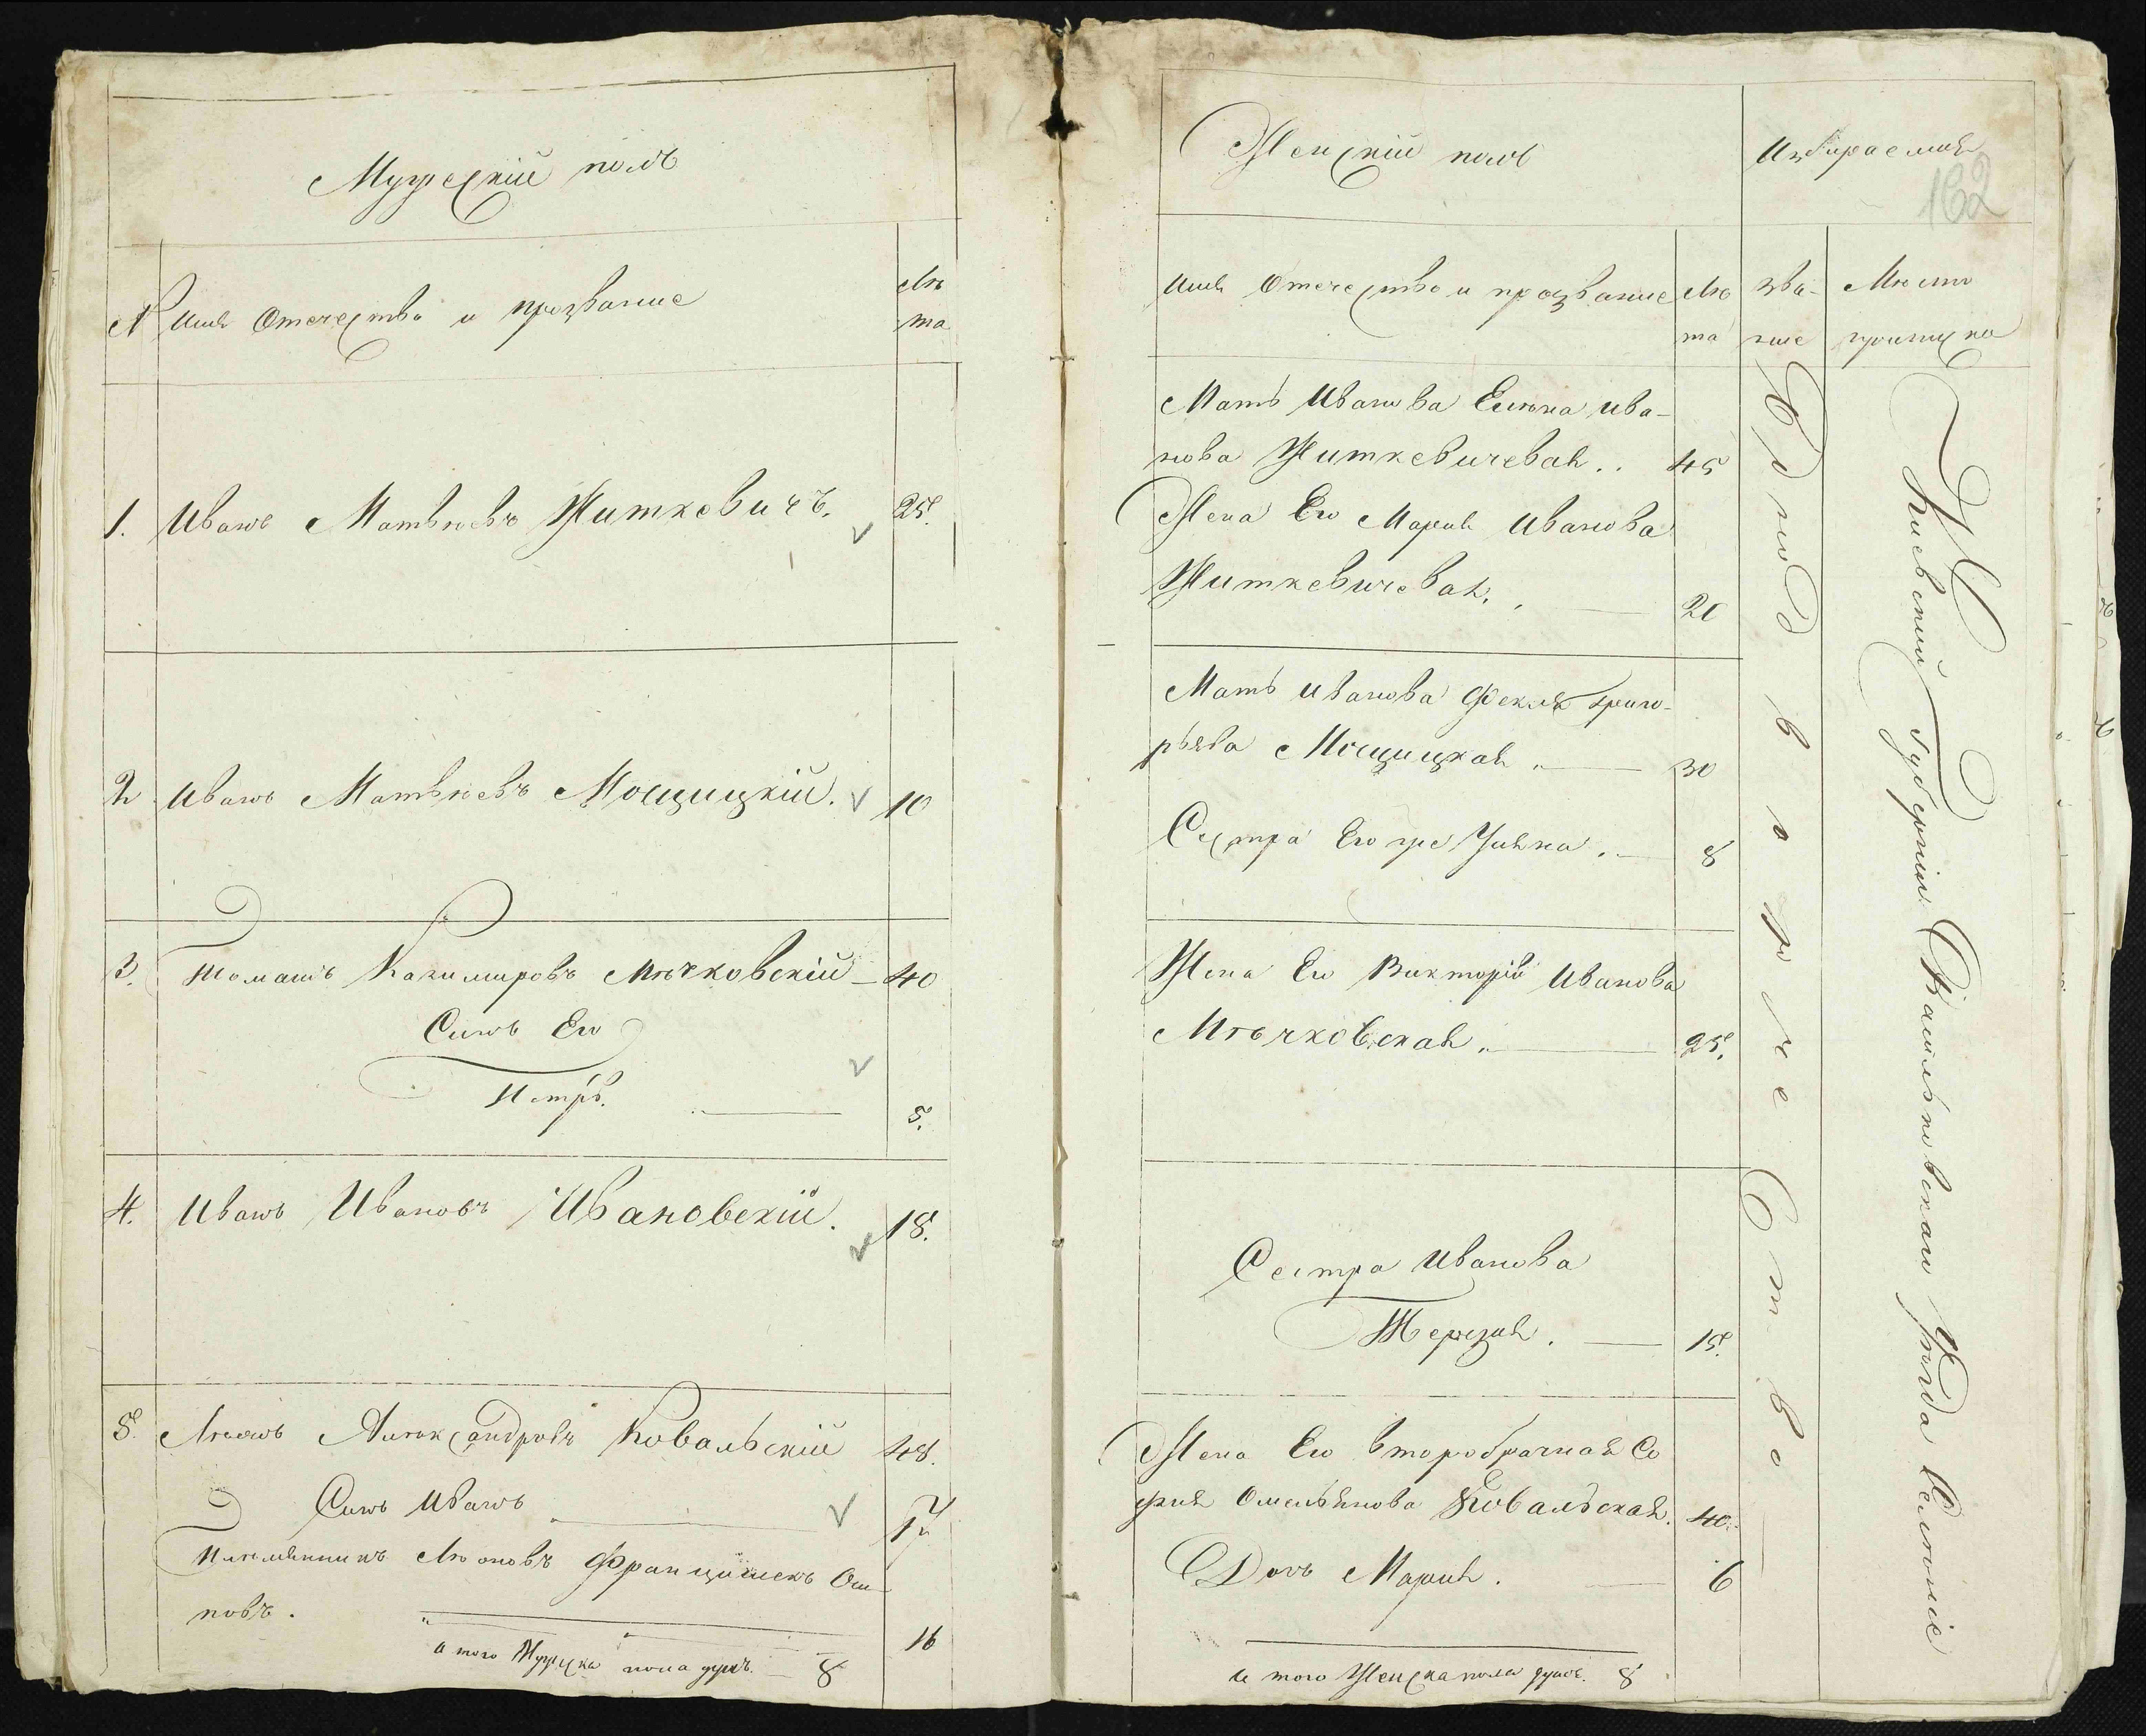 Мужескій полъ
№
Имя Отечество и прозваніе
Лѣ
та
1. Иванъ Матвѣевъ Житкевичъ. 25.
2 Иванъ Матвѣевъ Мощицкій. 10
3. Томашъ Казимировъ Мѣчковскій 40
Синъ Его
Петръ. 5.
4. Иванъ Ивановъ Ивановскій. 18.
5. Александровъ Ковальскій 48.
Синъ Иванъ 17
Племянникъ Францишекъ Оси-
повъ. 16
И того Мужска пола душъ. 8
Женскій полъ
Избираемыя
162
Имя Отечество и прозваніе
Лѣ
та
зва-
ніе
Мѣсто
Мать Иванова Елена Ива-
нова Житкевичевая.. 45
Жена Его Марія Иванова
Житкевичевая. 20
Мать Иванова Фекля Григо-
рьева Мощицкая 30
Сестра Его же 8
Жена Его Викторія Иванова
Мѣчковская 25.
Сестра Иванова
Терезия. 15.
Жена Его второбрачная Со
фия Омельянова Ковальская. 40.
Дочь Мария. 6
И того Женска пола душъ. 8
Однодворчество
Кіевской Губерніи Васильковскаго уѣзда Селеніе